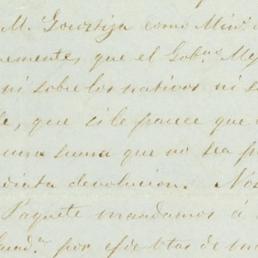 M. Gorostiza como Min.
nemente, que el Gob.no Me
ni sobre los nativos ni s
le, que si le parece que
una suma que no sea p
diata devolucion. Nos
Paquete mandamos á
por